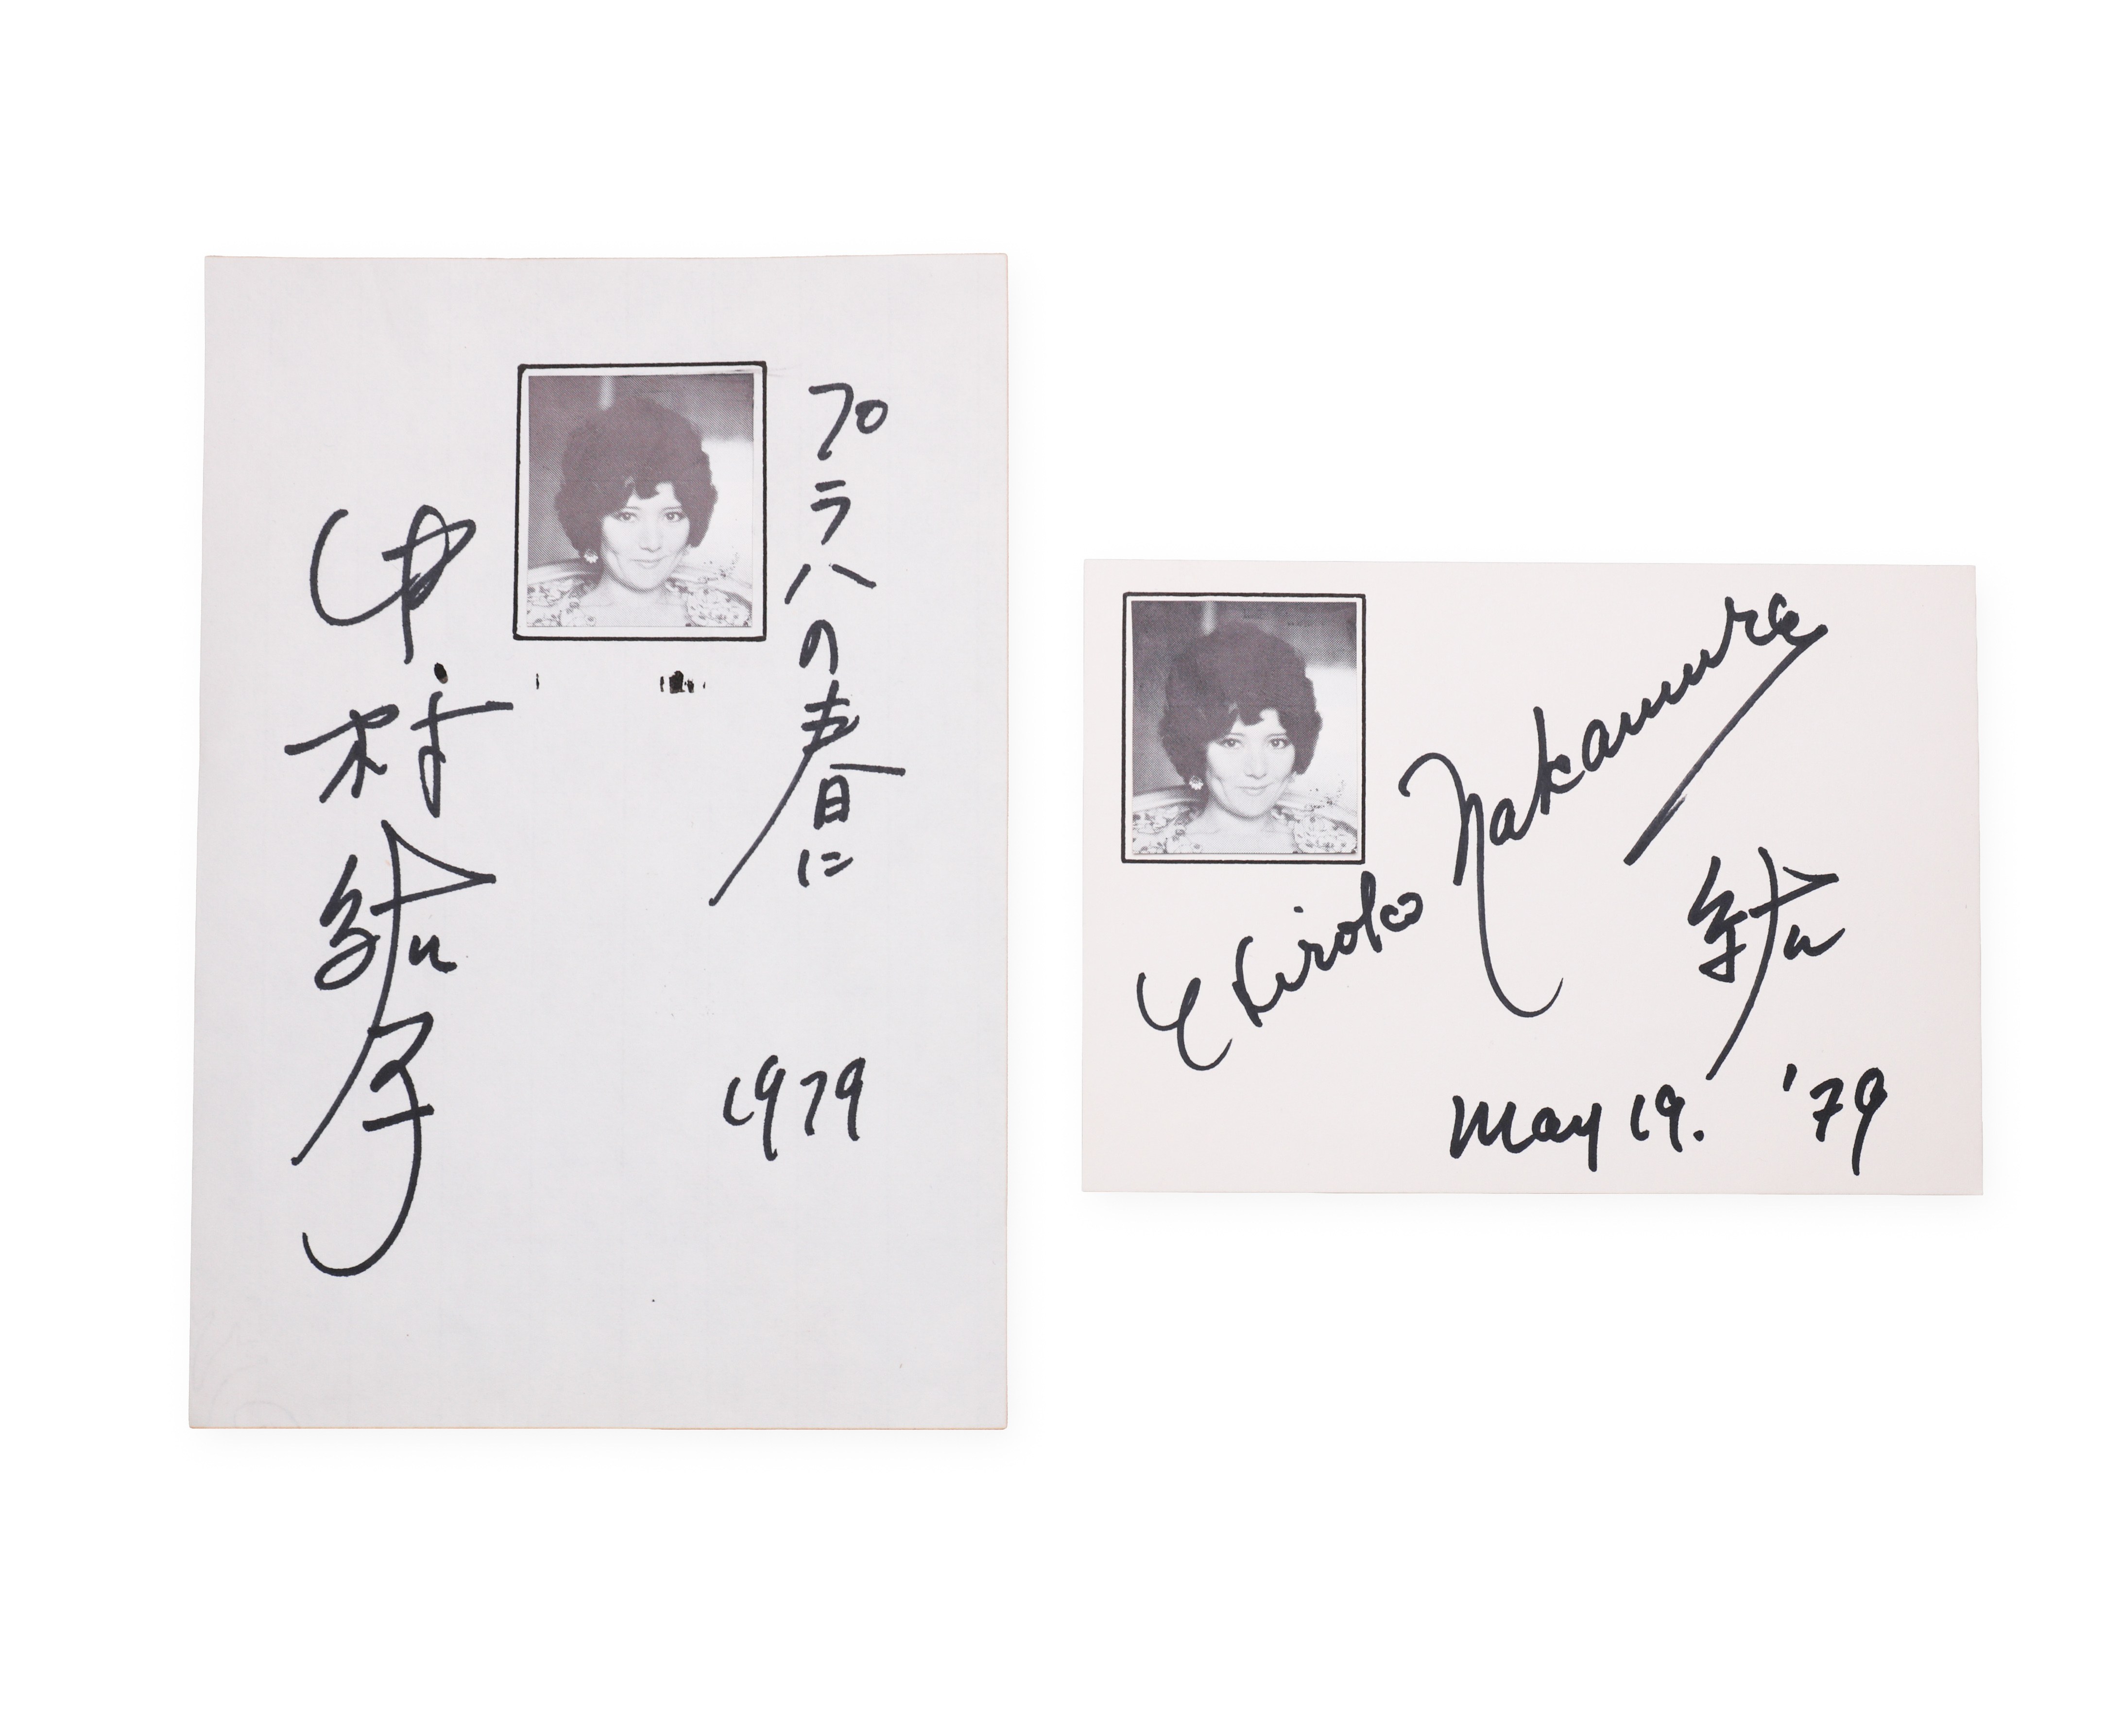 プラハの春に
中村紘子
1979
Hiroko Nakamura
紘
May 19. '79